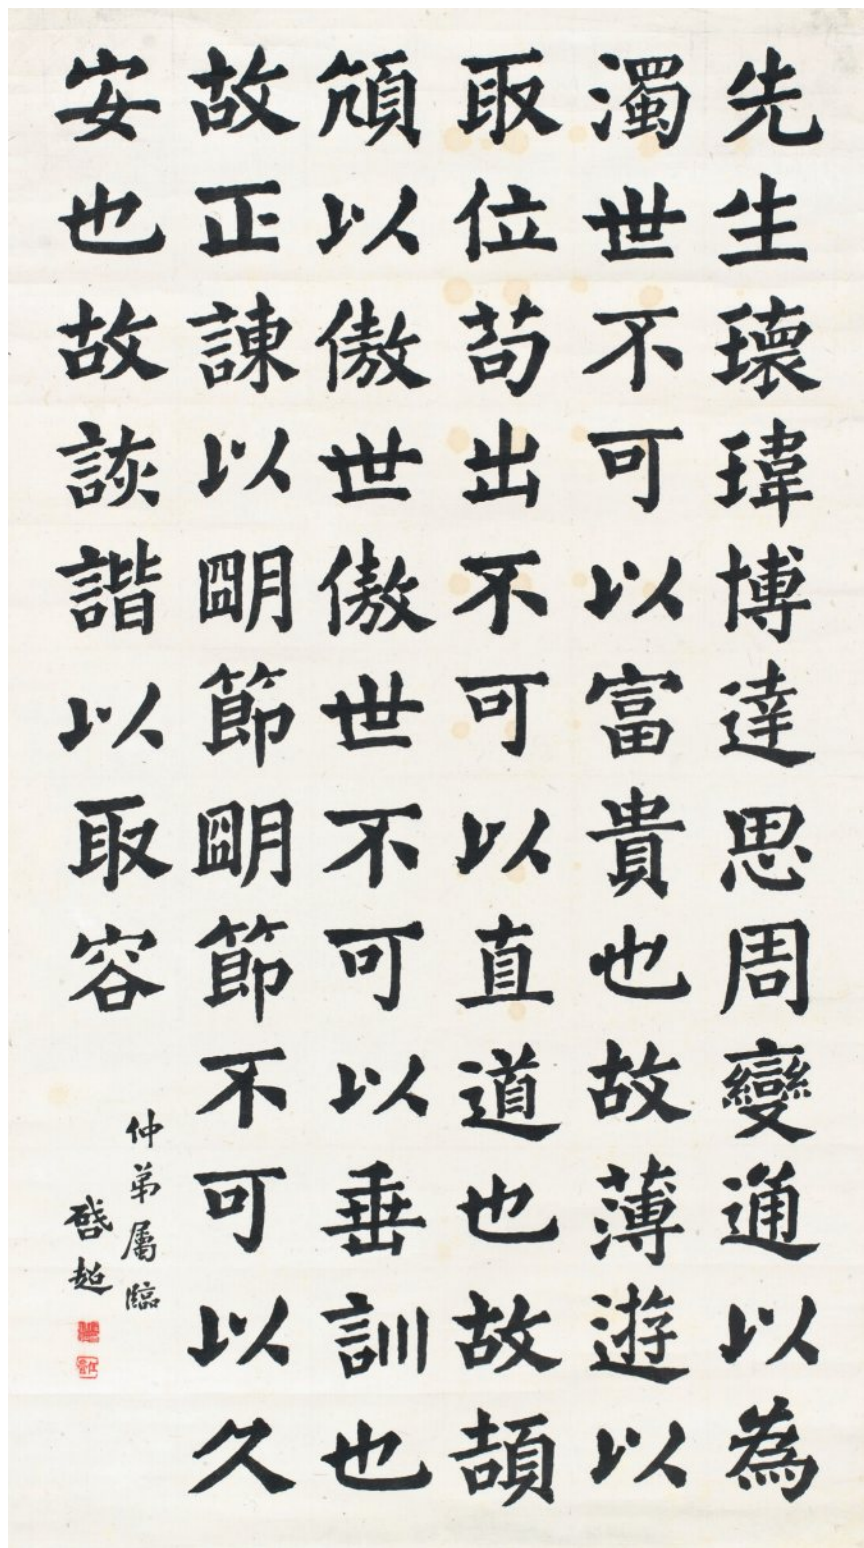 先生瓌瑋博達思周變通以為
濁世不可以富貴也故薄遊以
取位苟出不可以直道也故頡
頏以傲世傲世不可以垂訓也
故正諫以明節明節不可以久
安也故詼諧以取容
仲弟屬臨
啓超